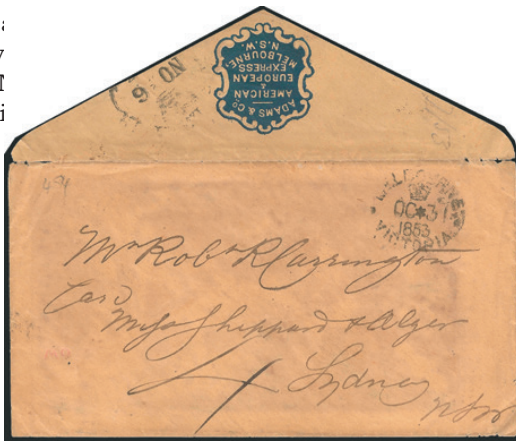 NO
9
ADAMS & CO
AMERICAN
&
EUROPEAN
EXPRESS
MELBOURNE,
N.S.W.
MELBOURNE
OC*31
1853
VICTORIA
Mr Robt R Carrington
Care
Messrs Sheppard & Alger
4 Sydney
NSW